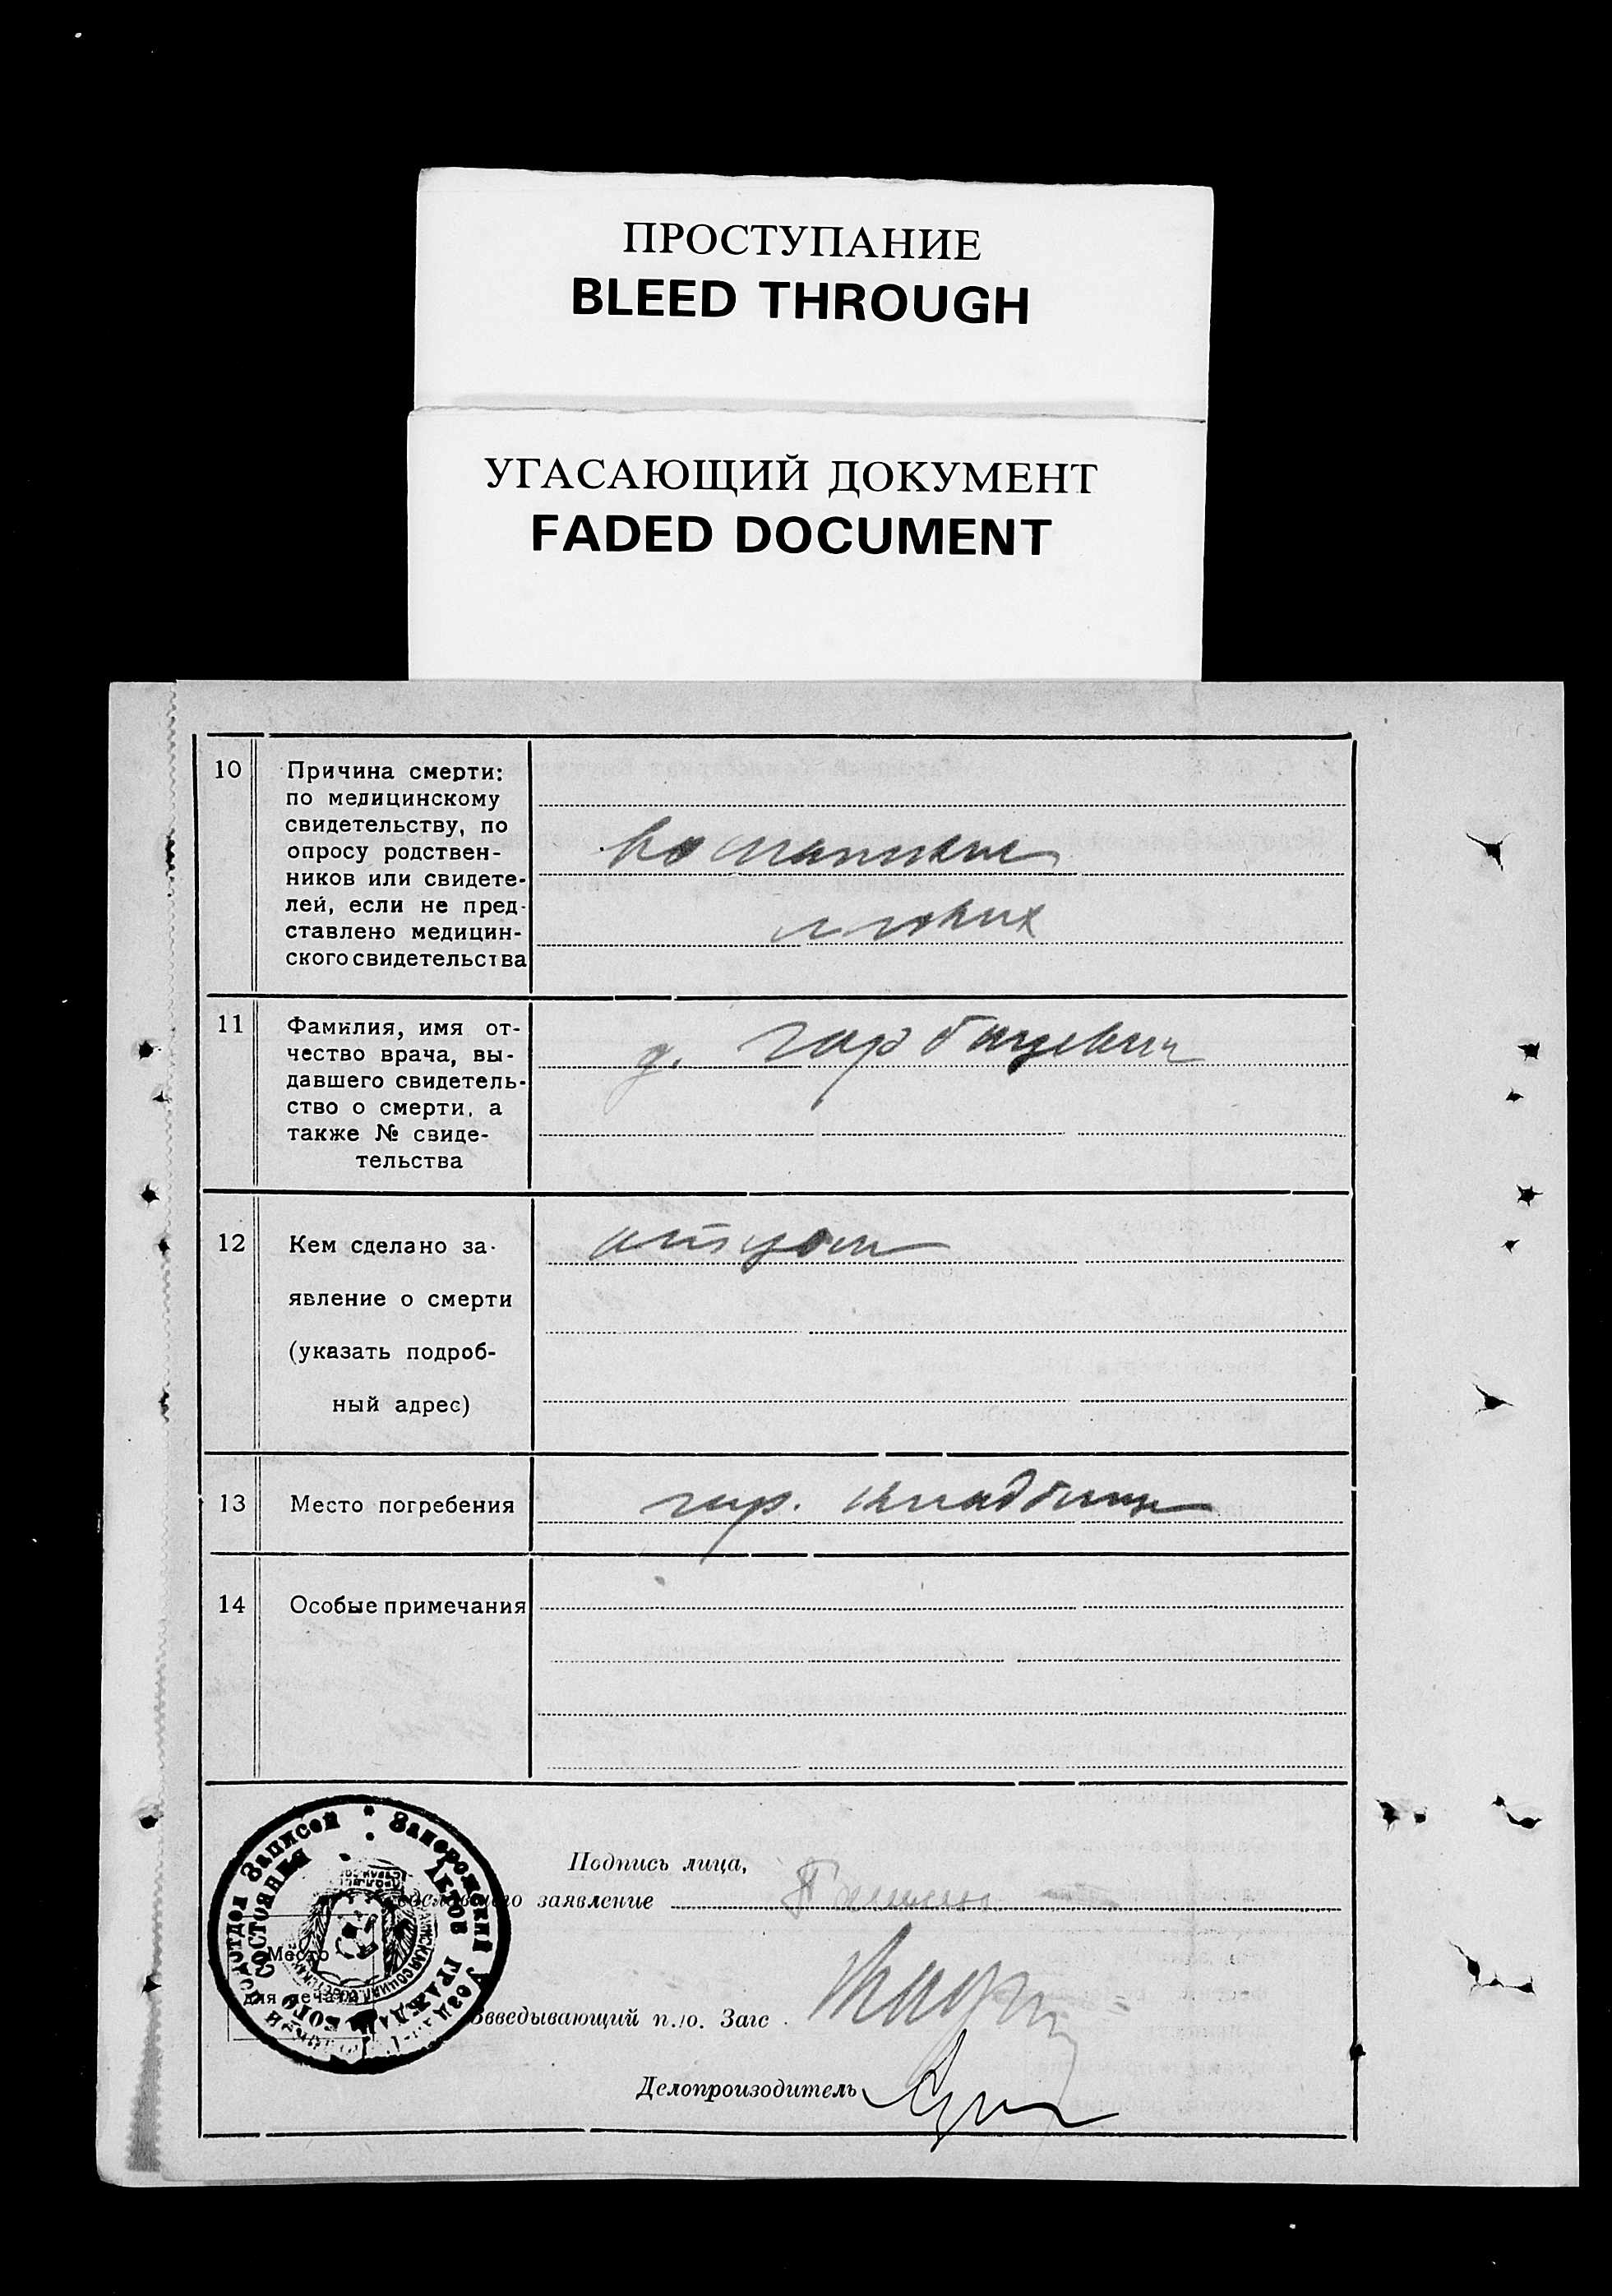 ПРОСТУПАНИЕ
BLEED THROUGH
УГАСАЮЩИЙ ДОКУМЕНТ
FADED DOCUMENT
10
Причина смерти:
по медицинскому
свидетельству, по
опросу родствен-
ников или свидете-
лей, если не пред-
ставлено медицин-
ского свидетельства
Воспаление
легких
11
Фамилия, имя от-
чество врача, вы-
давшего свидетель-
ство о смерти, а
также № свиде-
тельства
12
Кем сделано за-
явление о смерти
(указать подроб-
ный адрес)
отцом
13
Место погребения
гор. кладбище
14
Особые примечания
Подпись лица,
заявление
Место
для печати
Заведывающий п./о. Загс
Делопроизодитель
Подотдел Записей * Запорожский Уезд
Актов Граждан
Состояния